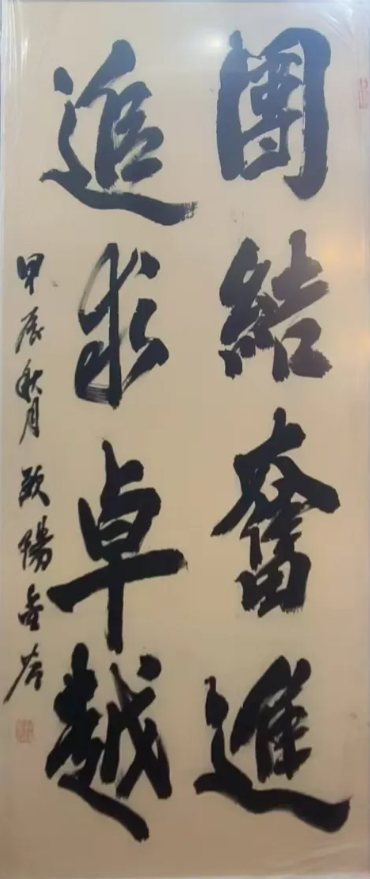 團結奮進
追求卓越
甲辰秋月歐陽